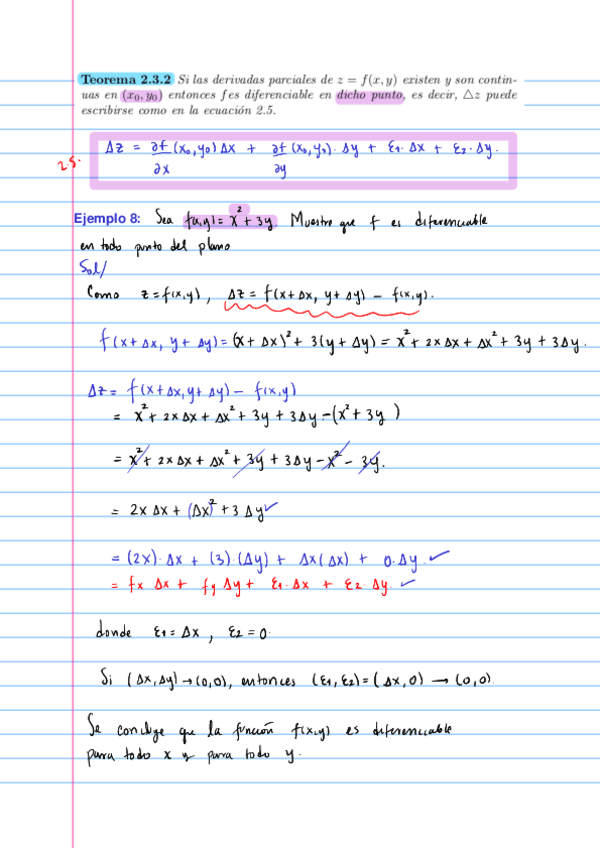 Teorema 2.3.2 Si las derivadas parciales de z = f(x, y) existen y son contin-
uas en (x₀, y₀) entonces f es diferenciable en dicho punto, es decir, △z puede
escribirse como en la ecuación 2.5.
2.5. Δz = ∂f/∂x (x₀,y₀) Δx + ∂f/∂y (x₀,y₀). Δy + ε₁. Δx + ε₂. Δy.
Ejemplo 8: Sea f(x,y) = x² + 3y. Muestre que f es diferenciable
en todo punto del plano
Sol/
Como z = f(x,y), Δz = f(x + Δx, y + Δy) − f(x,y).
f(x + Δx, y + Δy) = (x + Δx)² + 3(y + Δy) = x² + 2xΔx + Δx² + 3y + 3Δy.
Δz = f(x + Δx, y + Δy) − f(x,y)
= x² + 2xΔx + Δx² + 3y + 3Δy − (x² + 3y)
= x² + 2xΔx + Δx² + 3y + 3Δy − x² − 3y.
= 2x Δx + (Δx)² + 3Δy ✓
= (2x). Δx + (3).(Δy) + Δx(Δx) + 0.Δy ✓
= fx Δx + fy Δy + ε₁. Δx + ε₂. Δy. ✓
donde ε₁ = Δx , ε₂ = 0.
Si (Δx, Δy) → (0,0), entonces (ε₁, ε₂) = (Δx, 0) → (0,0)
Se concluye que la función f(x,y) es diferenciable
para todo x y para todo y.